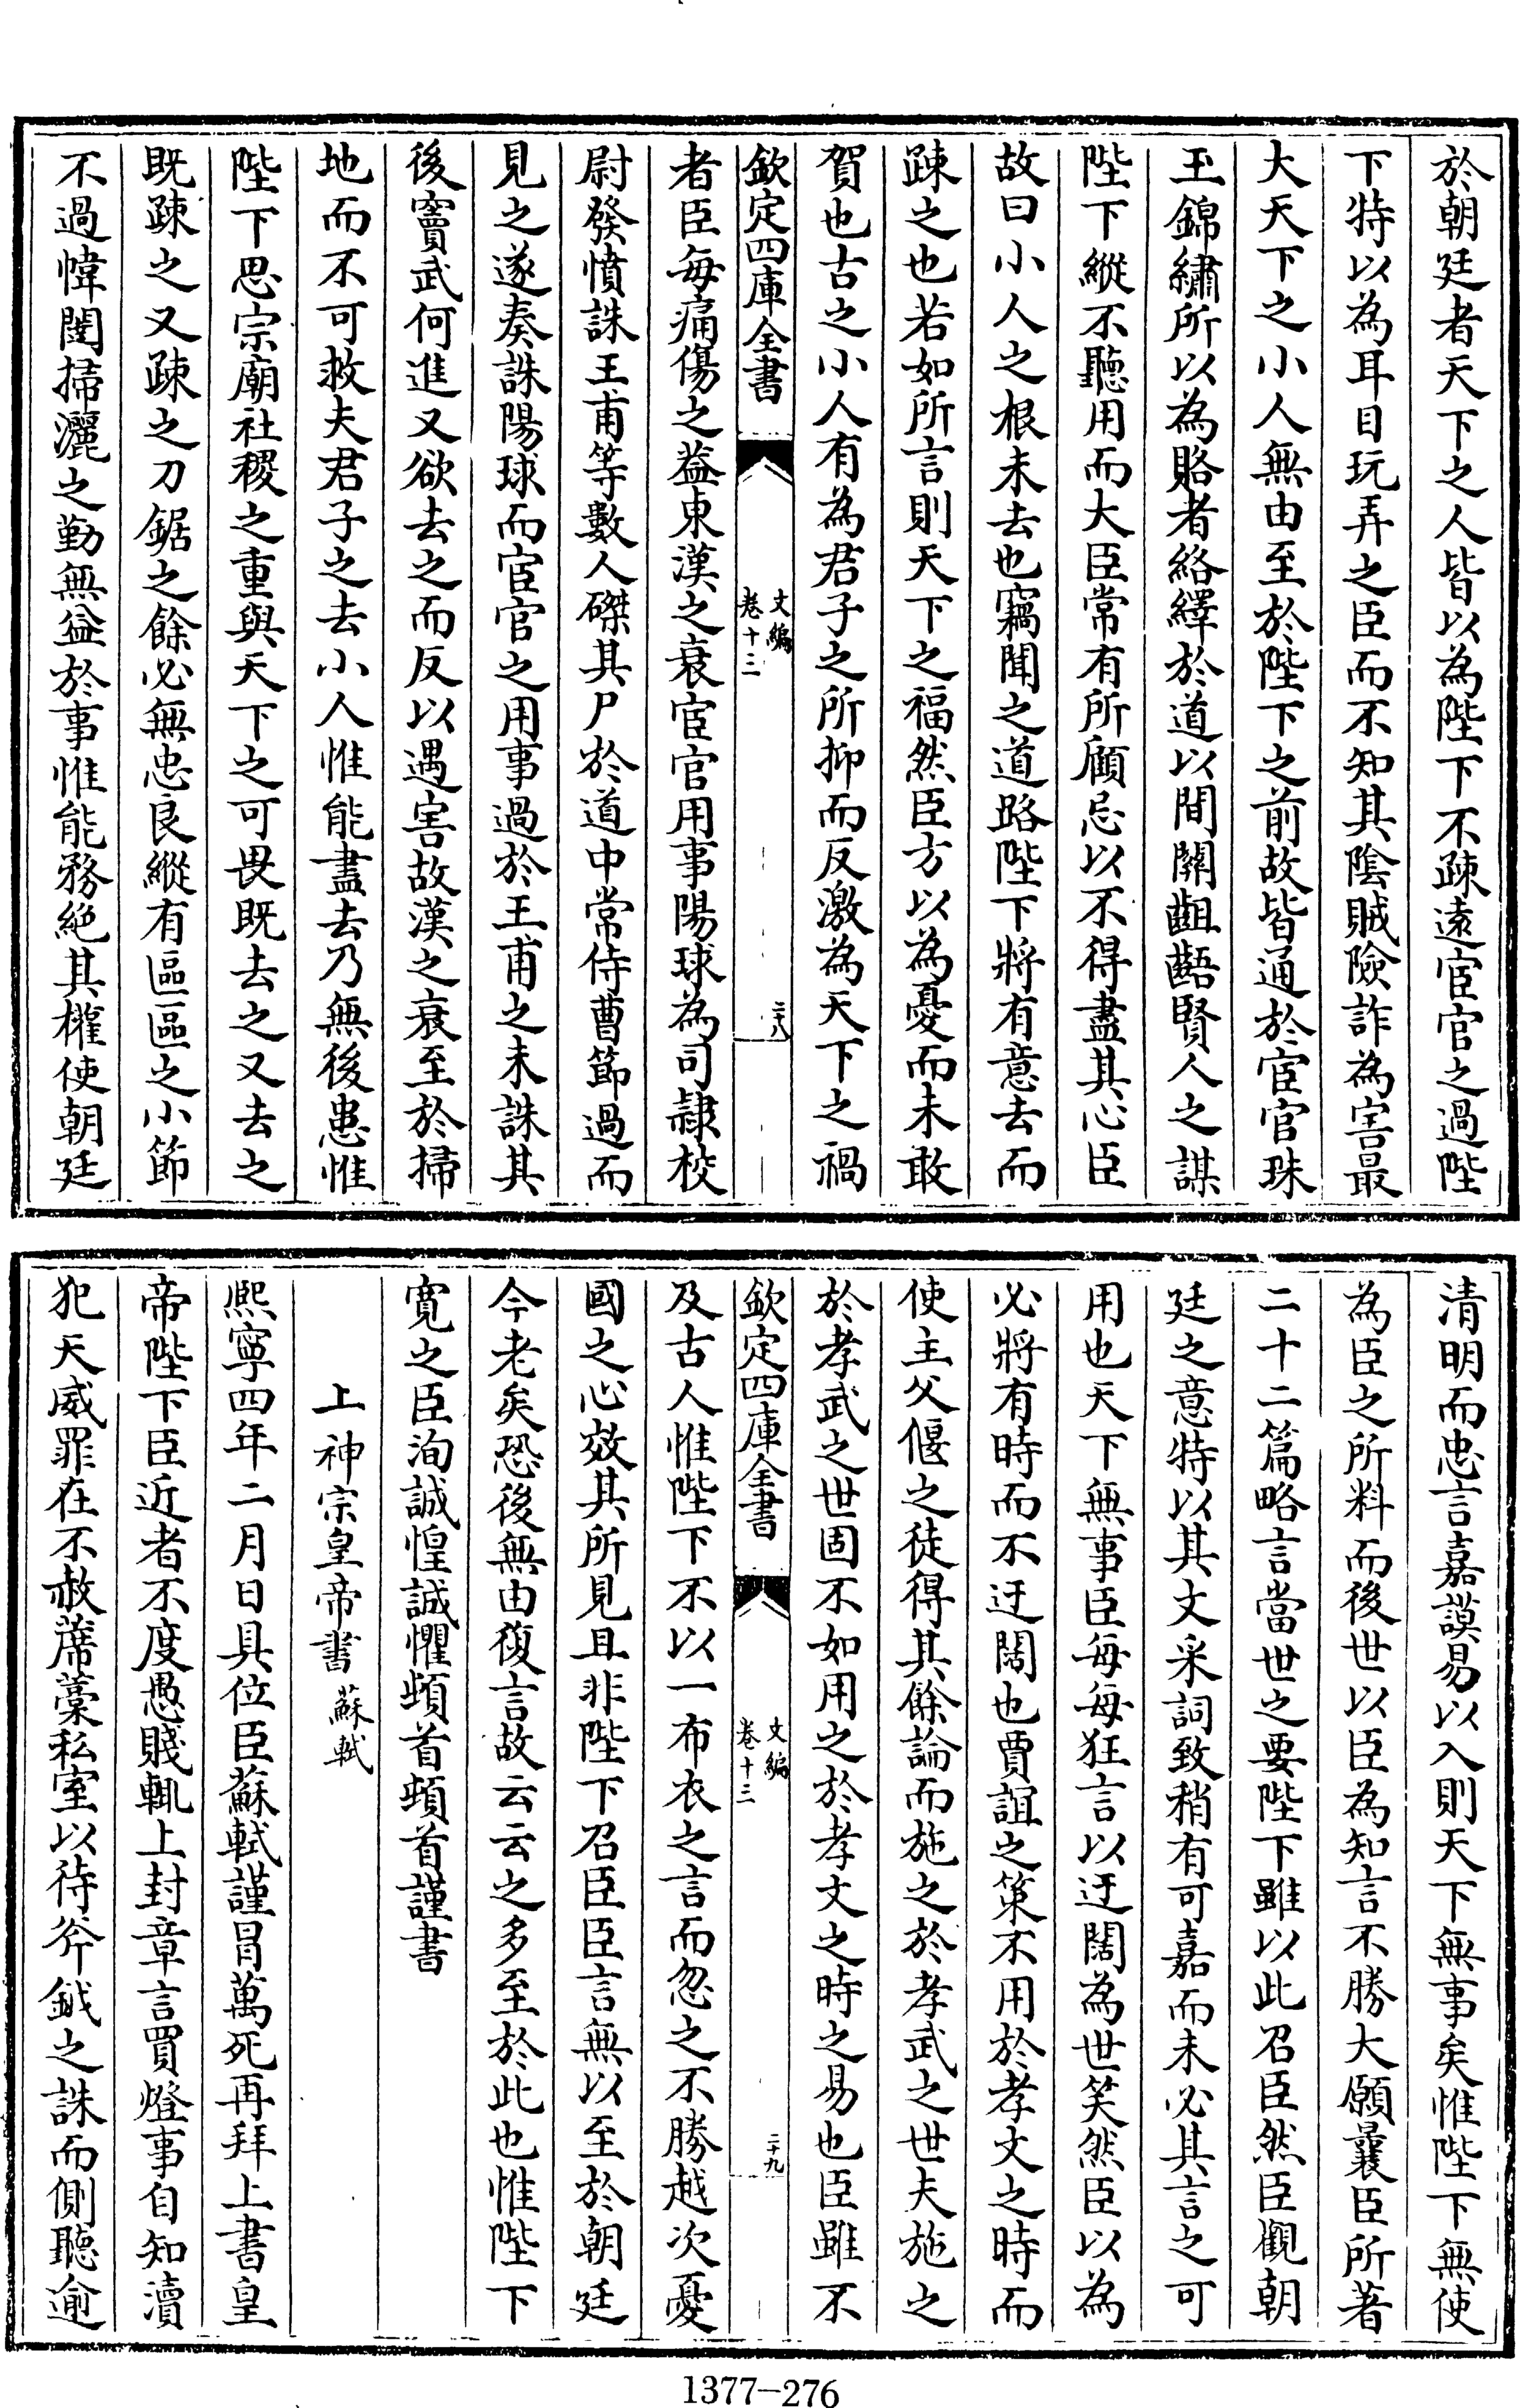 於朝廷者天下之人皆以為陛下不疎遠宦官之過陛
下特以為耳目玩弄之臣而不知其陰賊險詐為害最
大天下之小人無由至於陛下之前故皆通於宦官珠
玉錦繡所以為賂者絡繹於道以間關齟齬賢人之謀
陛下縱不聽用而大臣常有所顧忌以不得盡其心臣
故曰小人之根未去也竊聞之道路陛下將有意去而
疎之也若如所言則天下之福然臣方以為憂而未敢
賀也古之小人有為君子之所抑而反激為天下之禍
欽定四庫全書
文編
卷十三
二十八
者臣每痛傷之蓋東漢之衰宦官用事陽球為司隸校
尉發憤誅王甫等數人磔其尸於道中常侍曹節過而
見之遂奏誅陽球而宦官之用事過於王甫之未誅其
後竇武何進又欲去之而反以遇害故漢之衰至於掃
地而不可救夫君子之去小人惟能盡去乃無後患惟
陛下思宗廟社稷之重與天下之可畏既去之又去之
既疎之又疎之刀鋸之餘必無忠良縱有區區之小節
不過幃闥掃灑之勤無益於事惟能務絕其權使朝廷
清明而忠言嘉謨易以入則天下無事矣惟陛下無使
為臣之所料而後世以臣為知言不勝大願曩臣所著
二十二篇略言當世之要陛下雖以此召臣然臣觀朝
廷之意特以其文采詞致稍有可嘉而未必其言之可
用也天下無事臣每每狂言以迂闊為世笑然臣以為
必將有時而不迂闊也賈誼之策不用於孝文之時而
使主父偃之徒得其餘論而施之於孝武之世夫施之
於孝武之世固不如用之於孝文之時之易也臣雖不
欽定四庫全書
文編
卷十三
二十九
及古人惟陛下不以一布衣之言而忽之不勝越次憂
國之心效其所見且非陛下召臣臣言無以至於朝廷
今老矣恐後無由復言故云云之多至於此也惟陛下
寬之臣洵誠惶誠懼頓首頓首謹書
上神宗皇帝書 蘇軾
熙寧四年二月日具位臣蘇軾謹冒萬死再拜上書皇
帝陛下臣近者不度愚賤輒上封章言買燈事自知瀆
犯天威罪在不赦蓆藁私室以待斧鉞之誅而側聽逾
1377—276